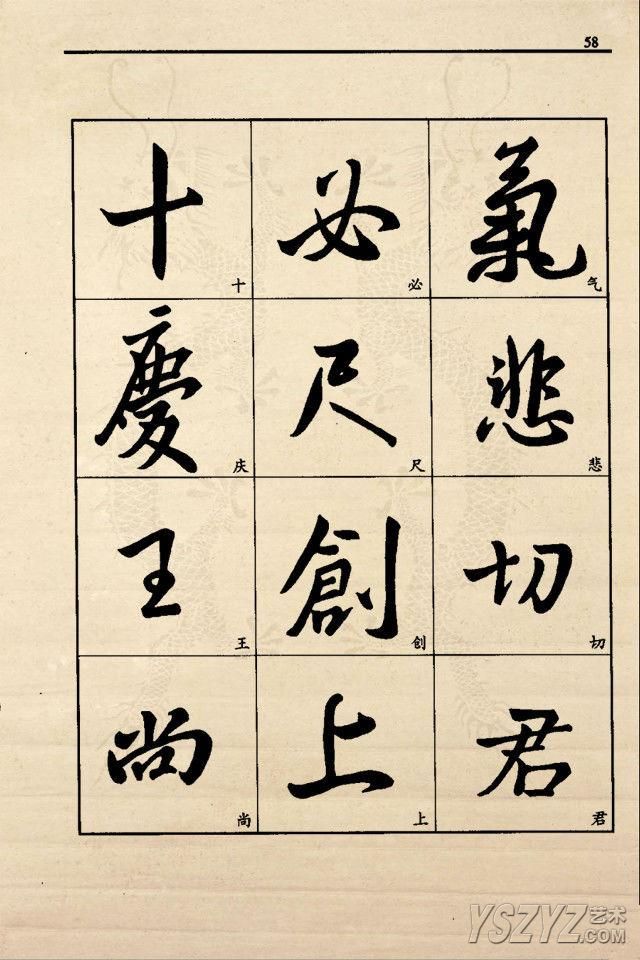 58
氣
气
悲
悲
切
切
君
君
必
必
尺
尺
創
创
上
上
十
十
慶
庆
王
王
尚
尚
YSZYZ艺术
.COM